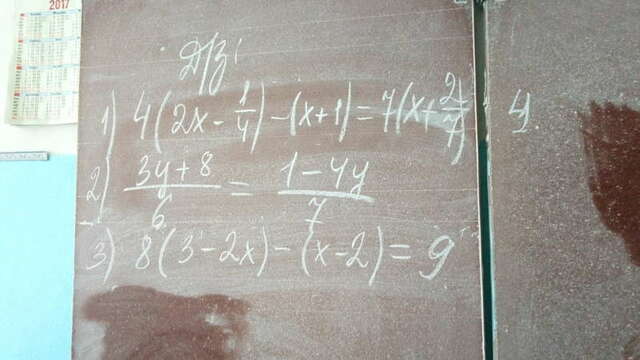 2017
Д/З
1) 4(2x - 1/4) - (x+1) = 7(x + 2/7)
2) (3y+8)/6 = (1-4y)/7
3) 8(3-2x) - (x-2) = 9
4.